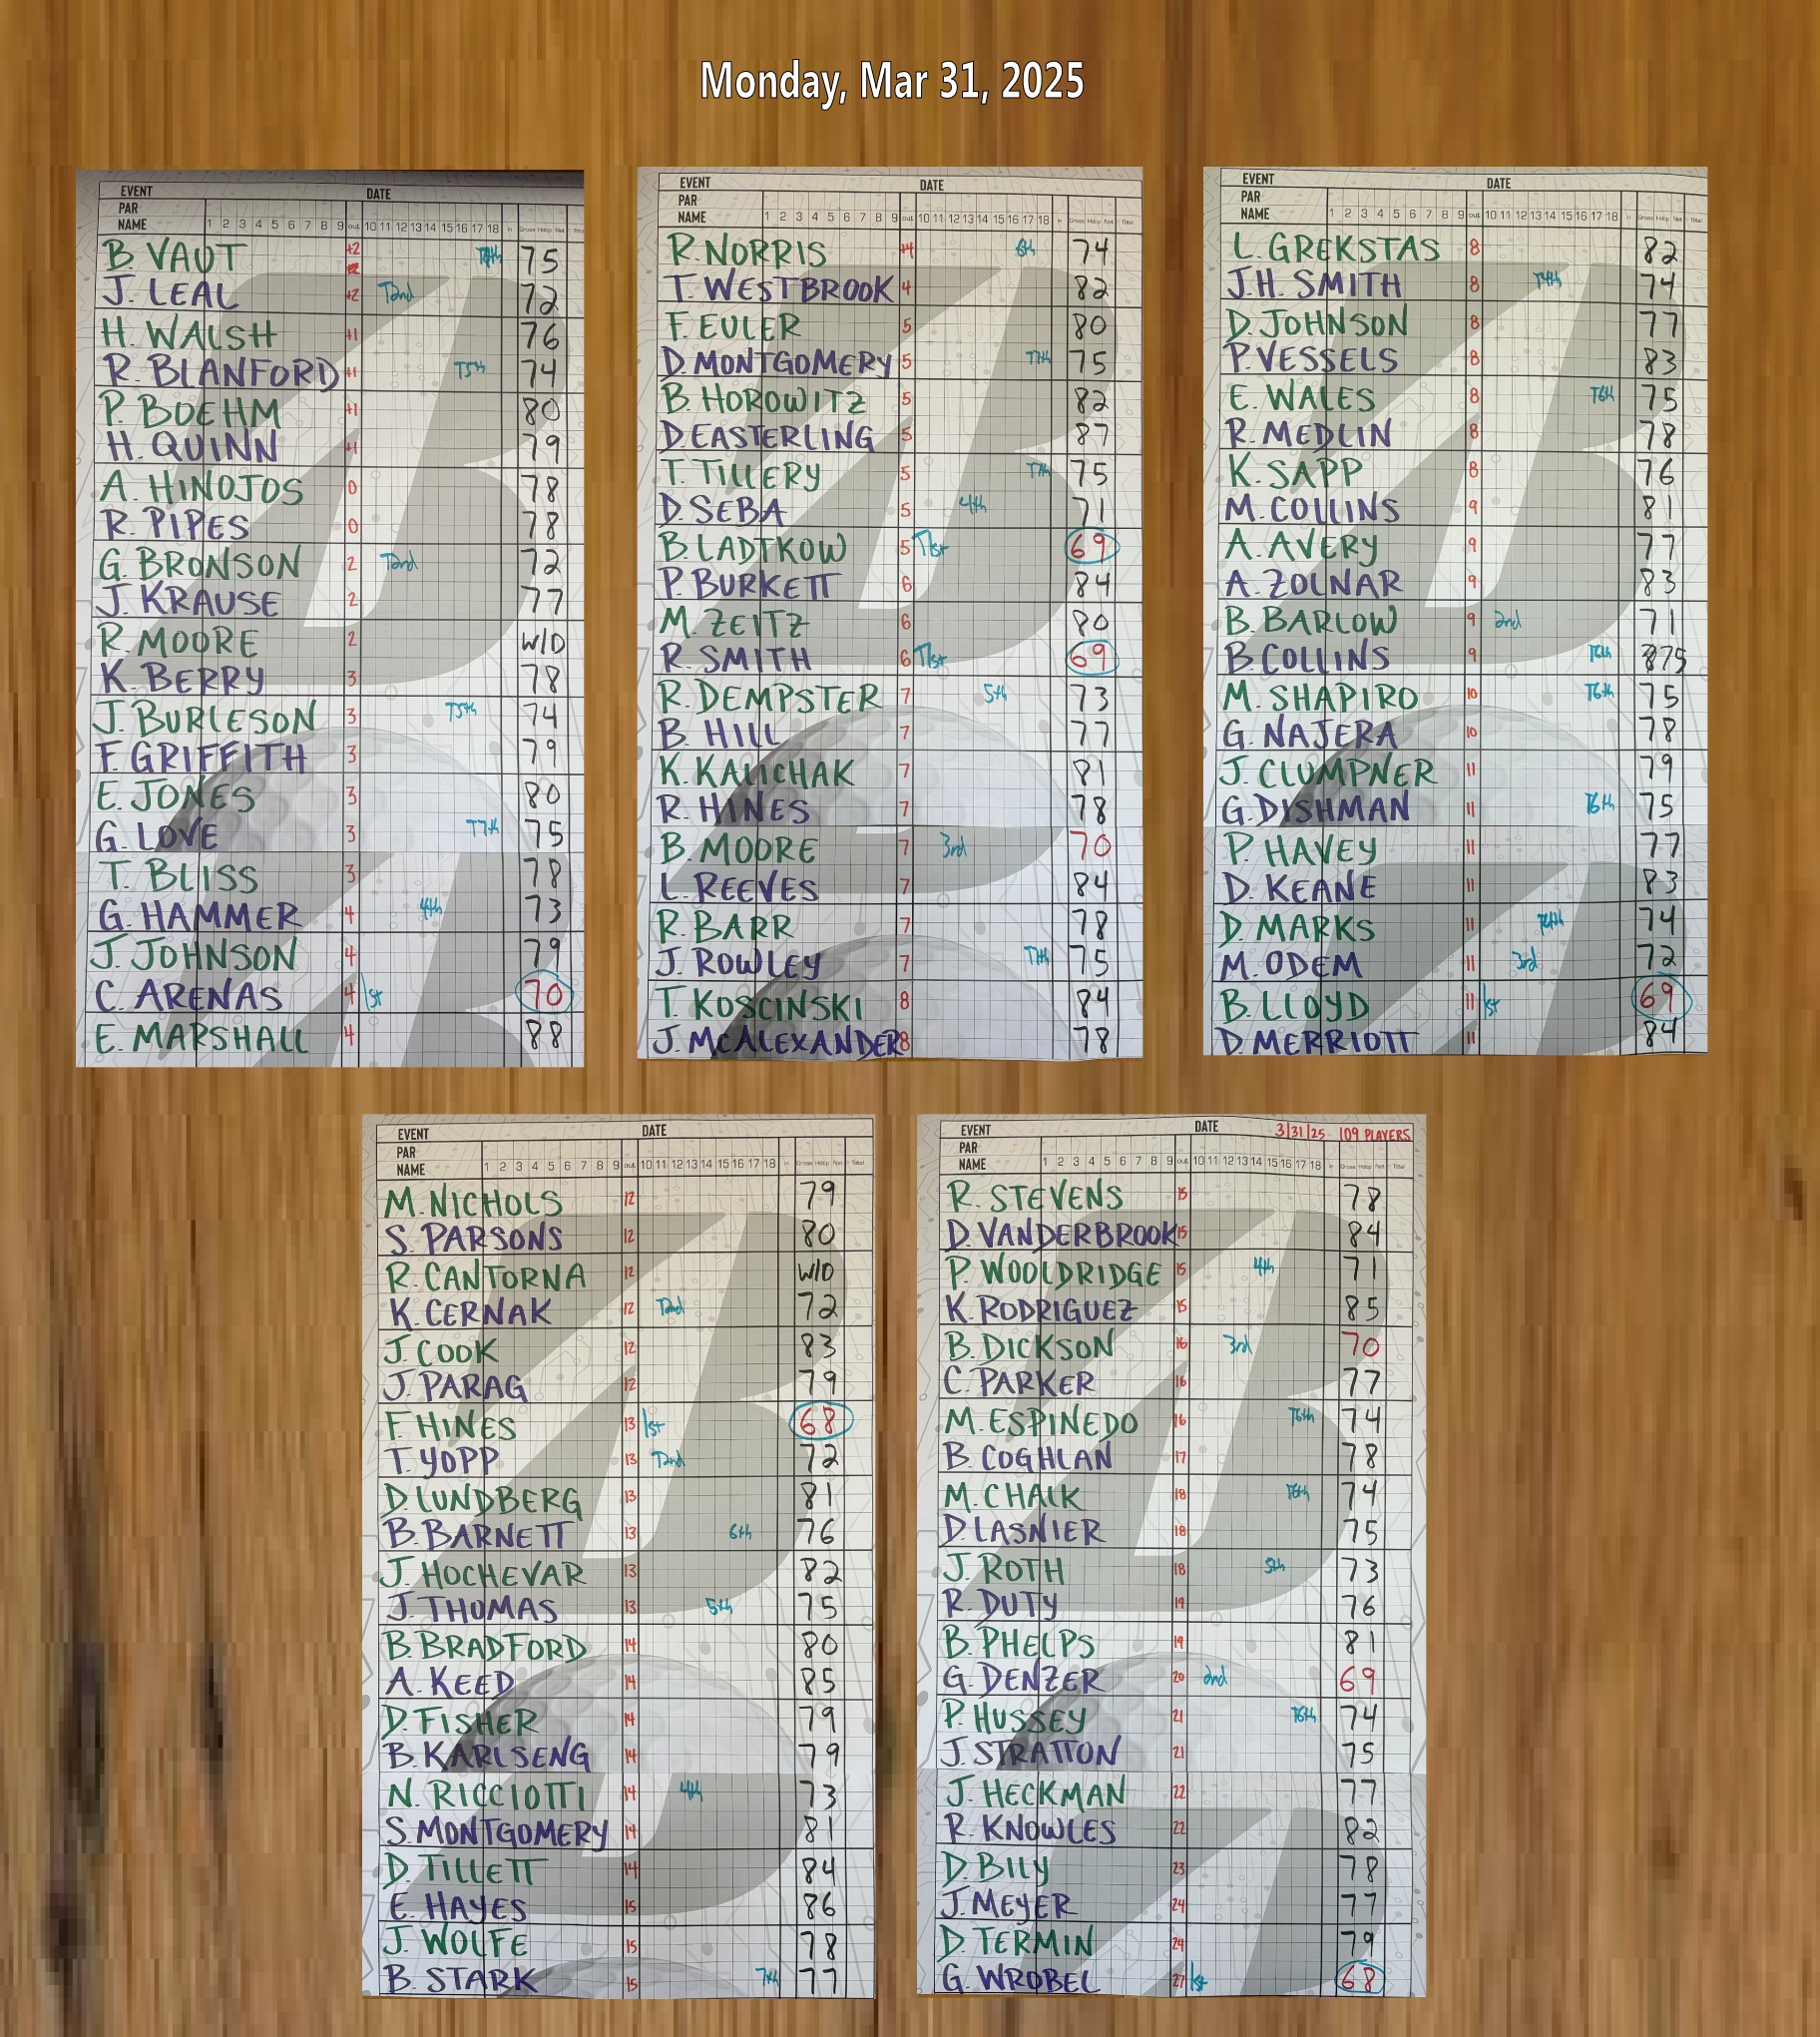 Monday, Mar 31, 2025
EVENT DATE
PAR
NAME 1 2 3 4 5 6 7 8 9 out 10 11 12 13 14 15 16 17 18 in Gross Hdcp Net Total
B. VAUT +2 75
J. LEAL +2 T2nd 72
H. WALSH +1 76
R. BLANFORD +1 T5th 74
P. BOEHM +1 80
H. QUINN +1 79
A. HINOJOS 0 78
R. PIPES 0 78
G. BRONSON 2 T2nd 72
J. KRAUSE 2 77
R. MOORE 2 W/D
K. BERRY 3 78
J. BURLESON 3 T5th 74
F. GRIFFITH 3 79
E. JONES 3 80
G. LOVE 3 T7th 75
T. BLISS 3 78
G. HAMMER 4 4th 73
J. JOHNSON 4 79
C. ARENAS 4 1st 70
E. MARSHALL 4 88
EVENT DATE
PAR
NAME 1 2 3 4 5 6 7 8 9 out 10 11 12 13 14 15 16 17 18 in Gross Hdcp Net Total
R. NORRIS 4 6th 74
T. WESTBROOK 4 82
F. EULER 5 80
D. MONTGOMERY 5 T7th 75
B. HOROWITZ 5 82
D. EASTERLING 5 87
T. TILLERY 5 T7th 75
D. SEBA 5 4th 71
B. LADTKOW 5 T1st 69
P. BURKETT 6 84
M. ZEITZ 6 80
R. SMITH 6 T1st 69
R. DEMPSTER 7 5th 73
B. HILL 7 77
K. KALICHAK 7 81
R. HINES 7 78
B. MOORE 7 3rd 70
L. REEVES 7 84
R. BARR 7 78
J. ROWLEY 7 T7th 75
T. KOSCINSKI 8 84
J. MCALEXANDER 8 78
EVENT DATE
PAR
NAME 1 2 3 4 5 6 7 8 9 out 10 11 12 13 14 15 16 17 18 in Gross Hdcp Net Total
L. GREKSTAS 8 82
J.H. SMITH 8 T4th 74
D. JOHNSON 8 77
P. VESSELS 8 83
E. WALES 8 T6th 75
R. MEDLIN 8 78
K. SAPP 8 76
M. COLLINS 9 81
A. AVERY 9 77
A. ZOLNAR 9 83
B. BARLOW 9 2nd 71
B. COLLINS 9 T6th 75
M. SHAPIRO 10 T6th 75
G. NAJERA 10 78
J. CLUMPNER 11 79
G. DISHMAN 11 T6th 75
P. HAVEY 11 77
D. KEANE 11 83
D. MARKS 11 T4th 74
M. ODEM 11 3rd 72
B. LLOYD 11 1st 69
D. MERRIOTT 11 84
EVENT DATE
PAR
NAME 1 2 3 4 5 6 7 8 9 out 10 11 12 13 14 15 16 17 18 in Gross Hdcp Net Total
M. NICHOLS 12 79
S. PARSONS 12 80
R. CANTORNA 12 W/D
K. CERNAK 12 T2nd 72
J. COOK 12 83
J. PARAG 12 79
F. HINES 13 1st 68
T. YOPP 13 T2nd 72
D. LUNDBERG 13 81
B. BARNETT 13 6th 76
J. HOCHEVAR 13 82
J. THOMAS 13 5th 75
B. BRADFORD 14 80
A. KEED 14 85
D. FISHER 14 79
B. KARLSENG 14 79
N. RICCIOTTI 14 4th 73
S. MONTGOMERY 14 81
D. TILLETT 14 84
E. HAYES 15 86
J. WOLFE 15 78
B. STARK 15 7th 77
EVENT DATE 3/31/25 109 PLAYERS
PAR
NAME 1 2 3 4 5 6 7 8 9 out 10 11 12 13 14 15 16 17 18 in Gross Hdcp Net Total
R. STEVENS 15 78
D. VANDERBROOK 15 84
P. WOOLDRIDGE 15 4th 71
K. RODRIGUEZ 15 85
B. DICKSON 16 3rd 70
C. PARKER 16 77
M. ESPINEDO 16 T6th 74
B. COGHLAN 17 78
M. CHALK 18 T6th 74
D. LASNIER 18 75
J. ROTH 18 5th 73
R. DUTY 19 76
B. PHELPS 19 81
G. DENZER 20 2nd 69
P. HUSSEY 21 T6th 74
J. STRATTON 21 75
J. HECKMAN 22 77
R. KNOWLES 22 82
D. BILY 23 78
J. MEYER 24 77
D. TERMIN 24 79
G. WROBEL 27 1st 68